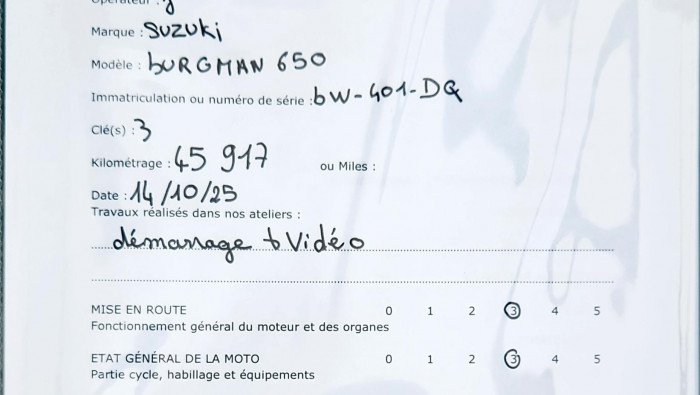 Opérateur :
Marque : SUZUKi
Modèle : bURGMAN 650
Immatriculation ou numéro de série : bW-401-DQ
Clé(s) : 3
Kilométrage : 45 917 ou Miles :
Date : 14/10/25
Travaux réalisés dans nos ateliers :
démarrage + Vidéo
MISE EN ROUTE 0 1 2 3 4 5
Fonctionnement général du moteur et des organes
ETAT GÉNÉRAL DE LA MOTO 0 1 2 3 4 5
Partie cycle, habillage et équipements